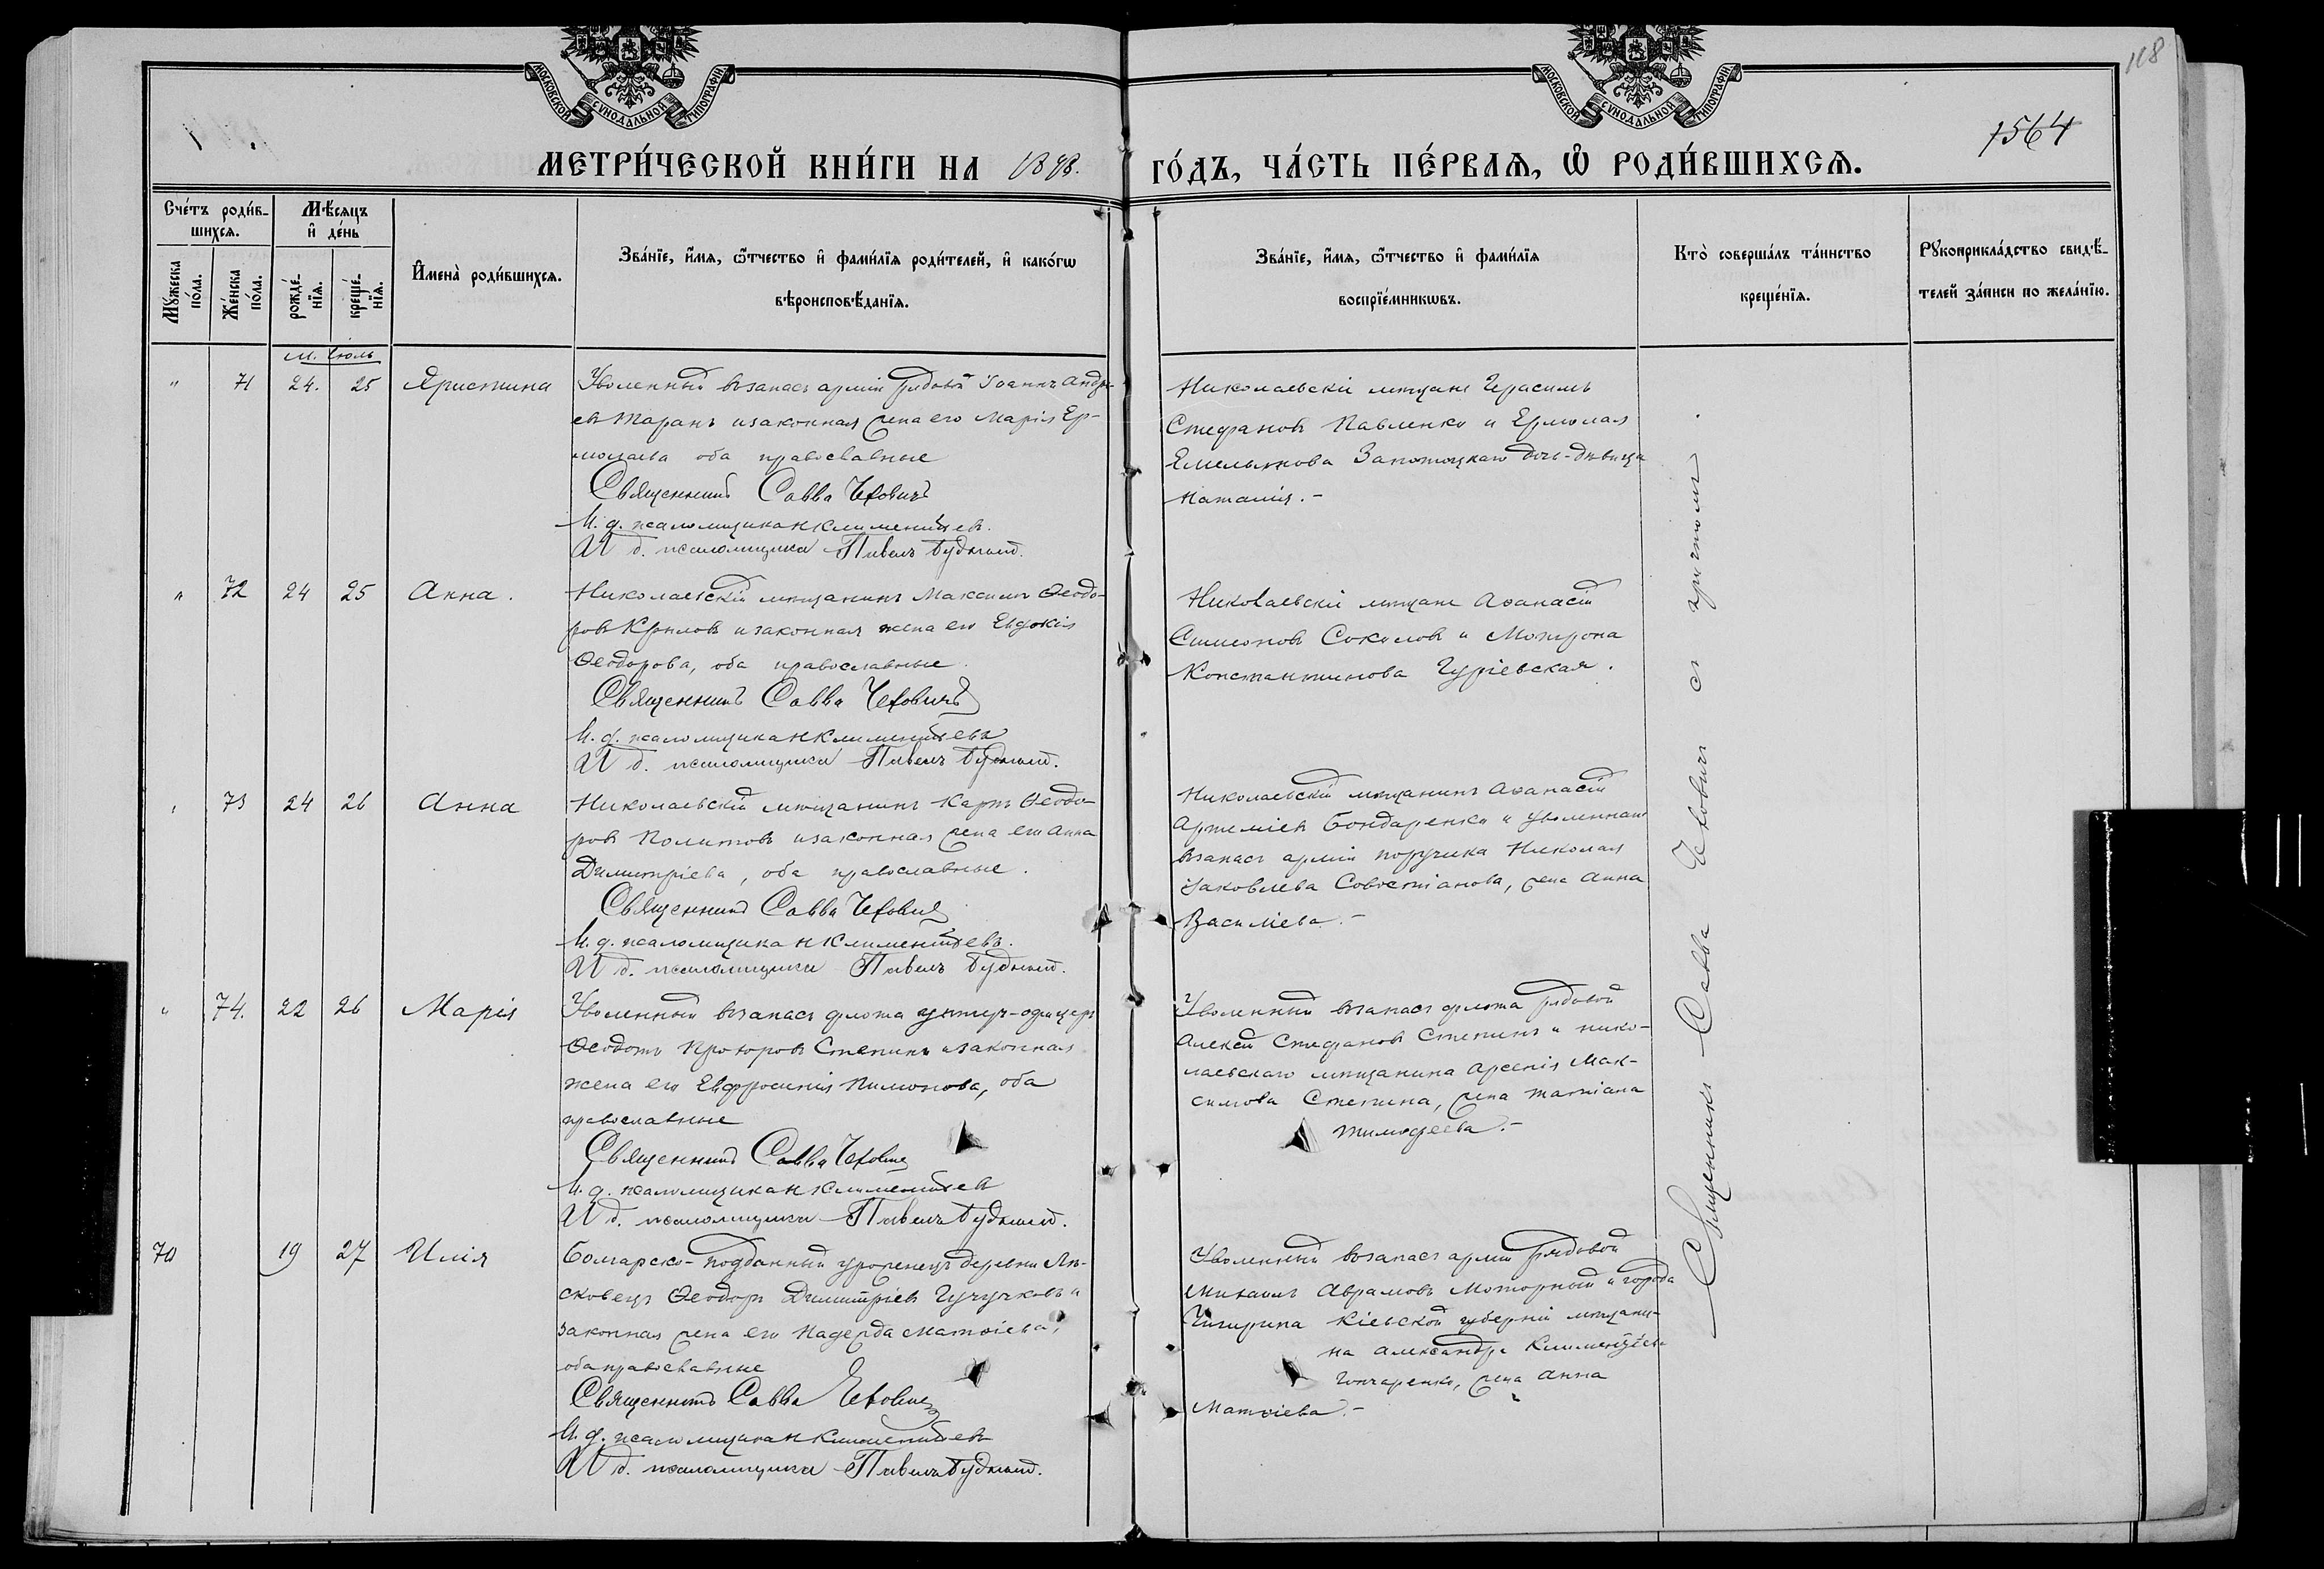 118
1564
МОСКОВСКОЙ СУНОДАЛЬНОЙ ТИПОГРАФІИ
МОСКОВСКОЙ СУНОДАЛЬНОЙ ТИПОГРАФІИ
МЕТРИ́ЧЕСКОЙ КНИ́ГИ НА 1898. ГО́ДЪ, ЧА́СТЬ ПЕ́РВАѦ, Ѡ҆ РОДИ́ВШИХСѦ.
Сче́тъ роди́в-
шихсѧ.
Мꙋ́жеска по́ла.
Же́нска по́ла.
Мѣ́сяцъ
и҆ де́нь
рожде́-
нїѧ.
креще́-
нїѧ.
И҆мена̀ роди́вшихсѧ.
Зва́нїе, и҆́мѧ, ѻ҆́тчество и҆ фами́лїѧ роди́телей, и҆ како́гѡ
вѣроисповѣ́данїѧ.
Зва́нїе, и҆́мѧ, ѻ҆́тчество и҆ фами́лїѧ
воспрїе́мникѡвъ.
Кто̀ соверша́лъ та́инство
креще́нїѧ.
Рꙋкоприкла́дство свидѣ́-
телей за́писи по жела́нїю.
М. Іюль
" 71 24. 25 Христина
Уволенный въ запасъ арміи рядовой Іоаннъ Андре-
евъ Таранъ и законная жена его Марія Ер-
молаева оба православные
Священникъ Савва Чехович
И. д. псаломщика Н Климентьевъ.
И д. псаломщика Павелъ Будный.
Николаевскіе мѣщане Герасимъ
Стефановъ Павленко и Ермолая
Емельянова Запотоцкаго дочь-дѣвица
Наталія.-
" 72 24 25 Анна.
Николаевскій мѣщанинъ Максимъ Ѳеодо-
ровъ Крыловъ и законная жена его Евдокія
Ѳеодорова, оба православные.
Священникъ Савва Чеховичъ
И. д. псаломщика Н Климентьевъ
И д. псаломщика Павелъ Будный.
Николаевскіе мѣщане Аѳанасій
Симеоновъ Соколовъ и Мотрона
Константинова Гуріевская.
" 73 24 26 Анна
Николаевскій мѣщанинъ Карпъ Ѳеодо-
ровъ Политовъ и законная жена его Анна
Димитріева, оба православные.
Священникъ Савва Чехович
И. д. псаломщика Н Климентьевъ.
И д. псаломщика Павелъ Будный.
Николаевскій мѣщанинъ Аѳанасій
Артеміевъ Бондаренко и уволеннаго
въ запасъ арміи поручика Николая
Іаковлева Совостіанова, жена Анна
Василіева.-
" 74. 22 26 Марія
Уволенный въ запасъ флота унтеръ-офицеръ
Ѳеодотъ Прохоровъ Степинъ и законная
жена его Евфросинія Пимонова, оба
православные
Священникъ Савва Чехович
И. д. псаломщика Н Климентьевъ
И д. псаломщика Павелъ Будный.
Уволенный въ запасъ флота рядовой
Алексѣй Стефановъ Степинъ и нико-
лаевскаго мѣщанина Арсенія Мак-
симова Степина, жена Татіана
Тимофеева.-
70 19 27 Илія
Болгарско-подданный уроженецъ деревни Ля-
сковецъ Ѳеодоръ Димитріевъ Гучучковъ и
законная жена его Надежда Матѳіева,
оба православные
Священникъ Савва Чехович
И. д. псаломщика Н Климентьевъ
И д. псаломщика Павелъ Будный.
Уволенный въ запасъ арміи рядовой
Михаилъ Аврамовъ Моторный и города
Чигирина Кіевской губерніи мѣщани-
на Александра Климентьева
Гончаренко, жена Анна
Матѳіева.-
Священникъ Савва Чеховичъ съ причтомъ.